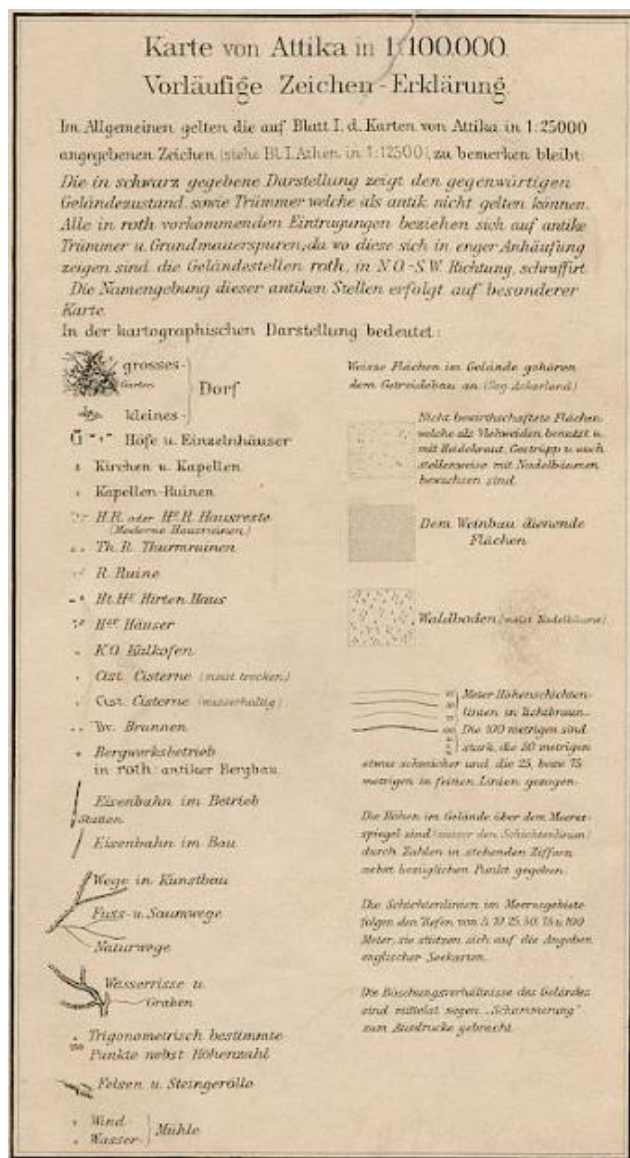 Karte von Attika in 1:100.000.
Vorläufige Zeichen-Erklärung.
Im Allgemeinen gelten die auf Blatt I. d. Karten von Attika in 1:25000
angegebenen Zeichen (siehe Bl. I. Athen in 1:12500), zu bemerken bleibt:
Die in schwarz gegebene Darstellung zeigt den gegenwärtigen
Geländezustand, sowie Trümmer welche als antik nicht gelten können.
Alle in roth vorkommenden Eintragungen beziehen sich auf antike
Trümmer u. Grundmauerspuren, da wo diese sich in enger Anhäufung
zeigen sind die Geländestellen roth, in N.O.-S.W. Richtung, schraffirt.
Die Namengebung dieser antiken Stellen erfolgt auf besonderer
Karte.
In der kartographischen Darstellung bedeutet:
grosses
Garten
Dorf
kleines
Höfe u. Einzelnhäuser
Kirchen u. Kapellen
Kapellen-Ruinen
H.R. oder Hs. R. Hausreste
(Moderne Hausruinen)
Th. R. Thurmruinen
R. Ruine
Ht. Hs. Hirten Haus
Hsr. Häuser
K.O. Kalkofen
Cist. Cisterne (meist trocken)
Cist. Cisterne (wasserhaltig)
Br. Brunnen
Bergwerksbetrieb
in roth: antiker Bergbau
Eisenbahn im Betrieb
Station
Eisenbahn im Bau
Wege in Kunstbau
Fuss- u. Saumwege
Naturwege
Wasserrisse u.
Graben
Trigonometrisch bestimmte
Punkte nebst Höhenzahl
Felsen u. Steingerölle
Wind
Wasser
Mühle
Weisse Flächen im Gelände gehören
dem Getreidebau an (Sog. Ackerland)
Nicht bewirthschaftete Flächen
welche als Viehweiden benutzt u.
mit Heidekraut, Gestrüpp u. auch
stellenweise mit Nadelbäumen
bewachsen sind.
Dem Weinbau dienende
Flächen
Waldboden (meist Nadelbäume)
Meter Höhenschichten-
linien in lichtbraun.
Die 100 metrigen sind
stark, die 50 metrigen
etwas schwächer und die 25, bezw. 75
metrigen in feinen Linien gezogen.
Die Höhen im Gelände über dem Meeres-
spiegel sind (ausser den Schichtenlinien)
durch Zahlen in stehenden Ziffern
nebst bezüglichen Punkt gegeben.
Die Schichtenlinien im Meeresgebiete
folgen den Tiefen von 5, 10, 25, 50, 75 u. 100
Meter, sie stützen sich auf die Angaben
englischer Seekarten.
Die Böschungsverhältnisse des Geländes
sind mittelst sogen. „Schummerung"
zum Ausdrucke gebracht.